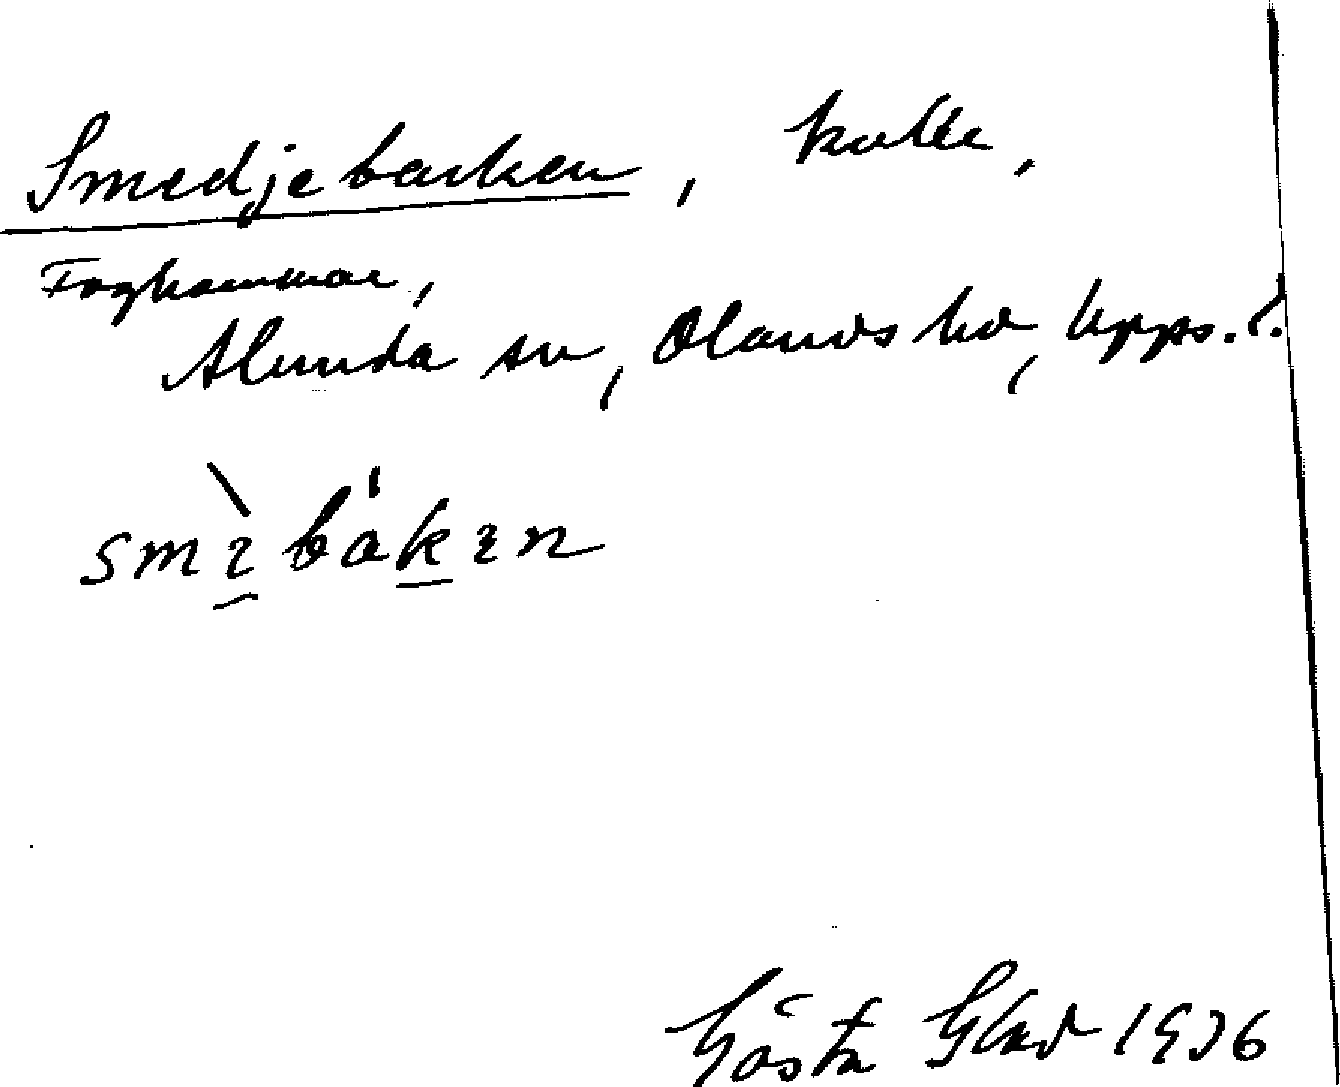 Smedjebacken, kulle,
Foghammar,
Alunda sn, Olands hd, Upps. l.
smɩbakɛn
Gösta Glad 1936